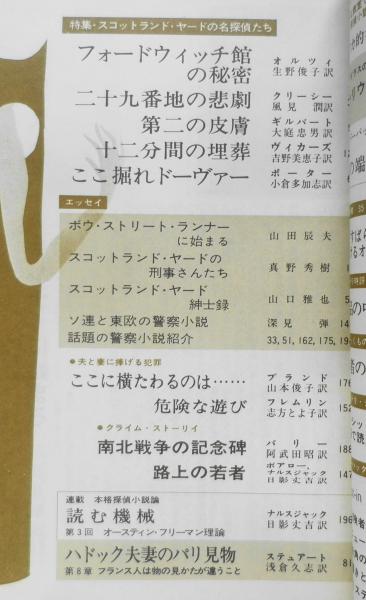 特集・スコットランド・ヤードの名探偵たち
フォードウィッチ館の秘密
オルツィ
生野俊子訳
二十九番地の悲劇
クリーシー
風見潤訳
第二の皮膚
ギルバート
大庭忠男訳
十二分間の埋葬
ヴィカーズ
吉野美恵子訳
ここ掘れドーヴァー
ポーター
小倉多加志訳
エッセイ
ボウ・ストリート・ランナーに始まる
山田辰夫
スコットランド・ヤードの刑事さんたち
真野秀樹
スコットランド・ヤード紳士録
山口雅也
ソ連と東欧の警察小説
深見弾
話題の警察小説紹介
33, 51, 162, 175,
●夫と妻に捧げる犯罪
ここに横たわるのは……
ブランド
山本俊子訳
176
危険な遊び
フレムリン
志方とよ子訳
152
●クライム・ストーリイ
南北戦争の記念碑
バリー
阿武田昭訳
188
路上の若者
ボアロー、
ナルスジャック
日影丈吉訳
147
連載 本格探偵小説論
読む機械
第3回 オースティン・フリーマン理論
ナルスジャック
日影丈吉訳
196
ハドック夫妻のパリ見物
第8章 フランス人は物の見かたが違うこと
ステュアート
浅倉久志訳